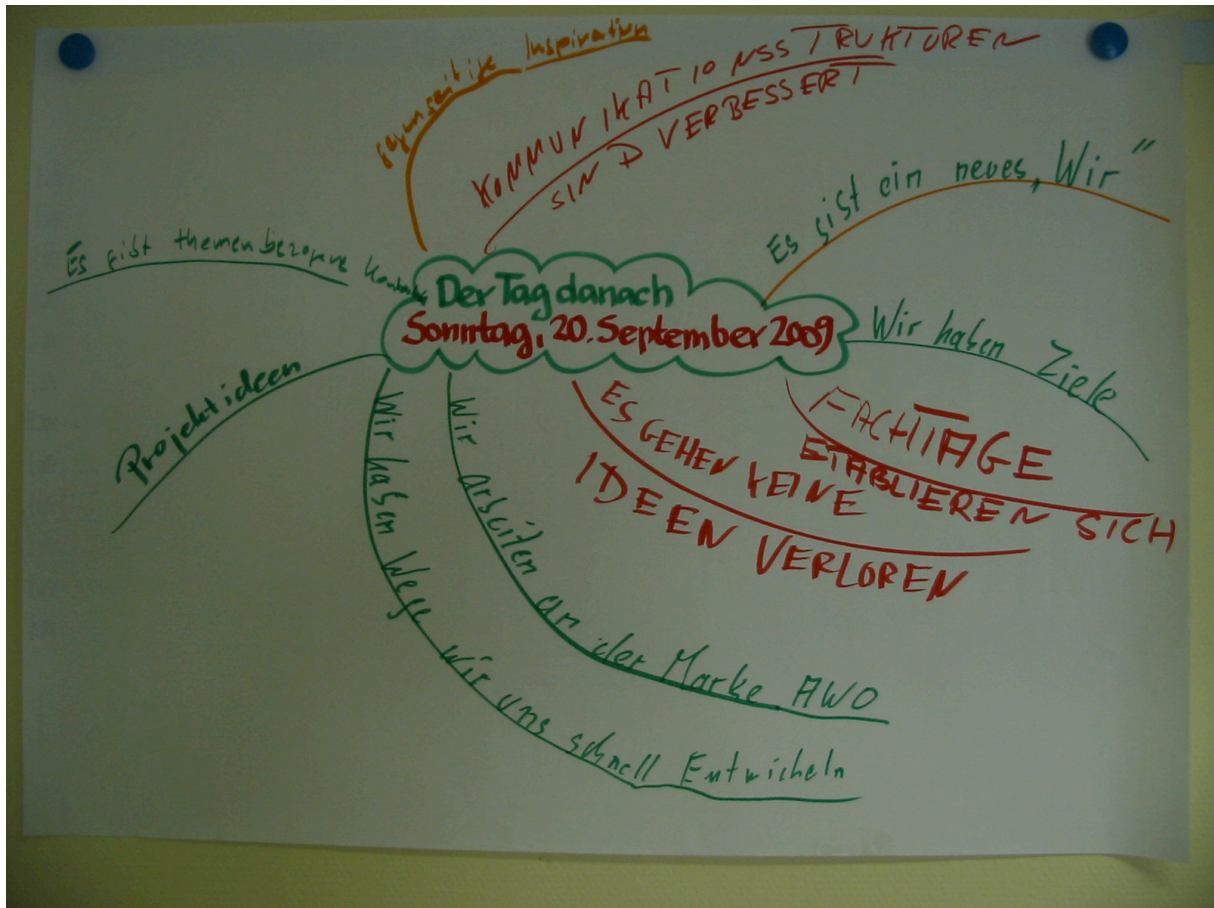 Der Tag danach
Sonntag, 20. September 2009
gegenseitige Inspiration
KOMMUNIKATIONSSTRUKTUREN
SIND VERBESSERT
Es gibt ein neues „Wir“
Wir haben Ziele
FACHTAGE
ETABLIEREN SICH
ES GEHEN KEINE
IDEEN VERLOREN
Wir arbeiten an der Marke AWO
Wir haben Wege wir uns schnell Entwickeln
Projektideen
Es gibt themenbezogene